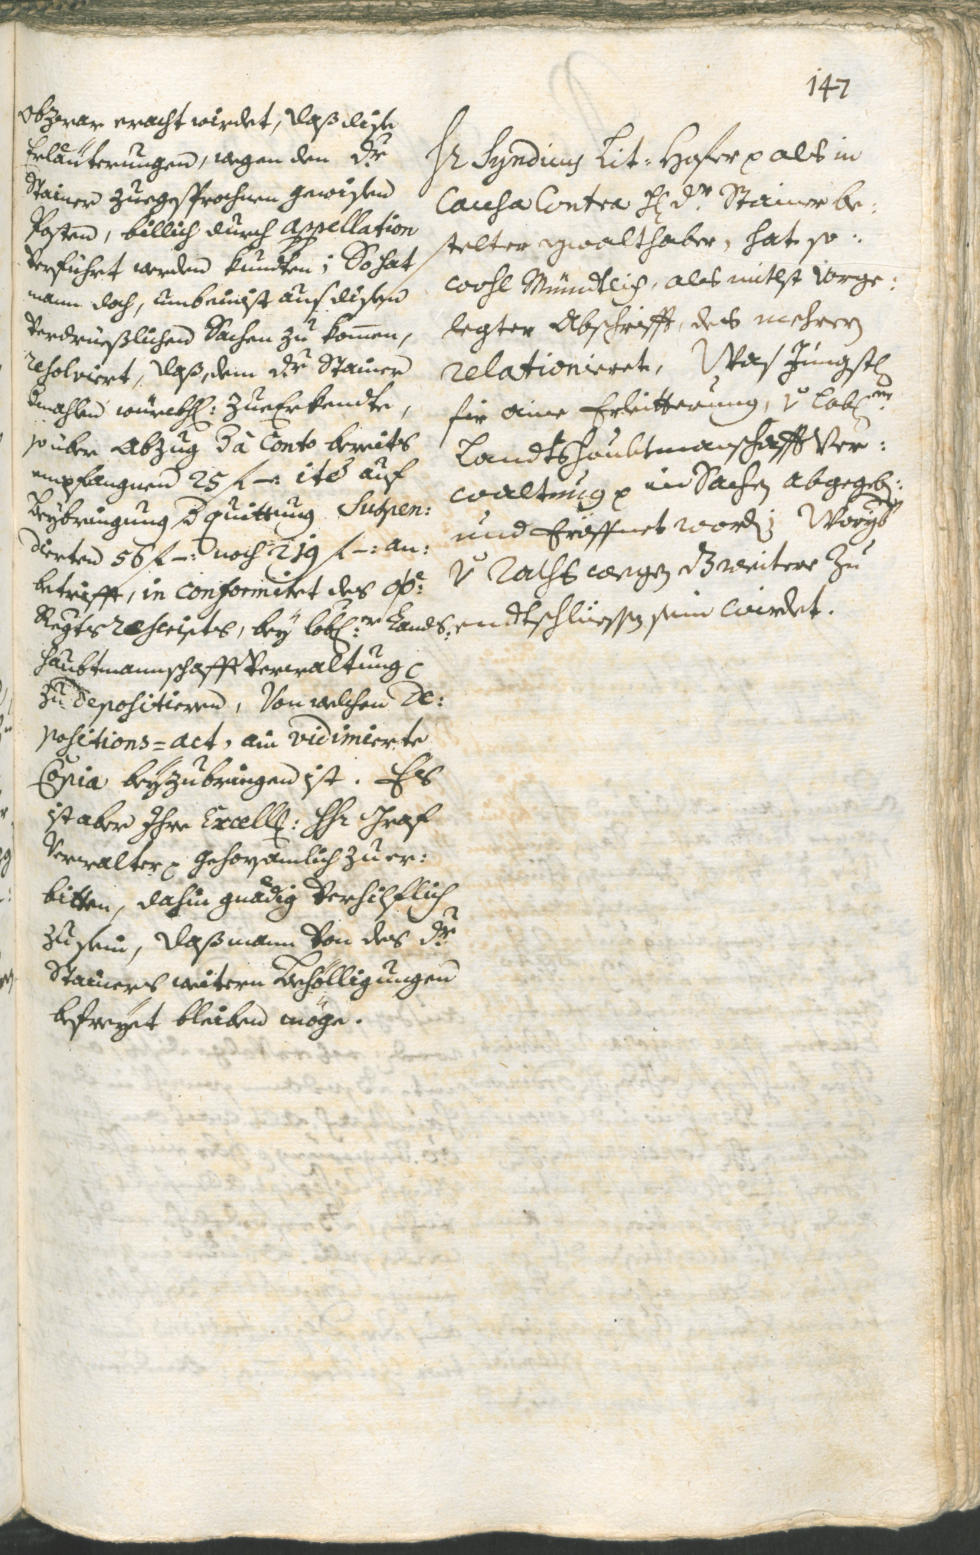 147
Obzwar eracht wirdet, daß dise
Erläuterungen, wegen den Dr
Stainer zuegesprochnen gewisen
Posten, billich durch Appellation
verführt werden kundten; So hat
mann doch, umb einist aus disen
verdrüeßlichen Sachen zu komen,
resolviert, daß, dem dr Stainer
würckhl: zue Erkendte,
so über Abzug à Conto bereits
empfangnen 25 f –: itē auf
Beybringung quittung Suspen:
dierten 56 f –: noch 219 f –: an:
betrifft, in conformitet des
Regts rescripts, bey lobl:r Lands:
haubtmannschafft Verwaltung
zu depositieren, von welchen De:
positions=act, ain vidimierte
Copia beyzubringen ist. Es
ist aber Ihre Excell: Hr Graf
Verwalter gehorsamlich zu er:
bitten, dahin gnädig verhilflich
zu sein, daß mann von des Dr
Stainers weitern Behölligungen
befreyet bleiben möge.
Hr Syndicus Lit: Hofer als in
Causa Contra H: dr Stainer be:
stelter gwalthaber, hat so:
wohl Mündtlich, als mitlst vorge:
legter Abschrifft, des mehrern
relationieret, Was Jüngstl
für aine Erleitterung, v Lobl
Landtshaubtmanschafft Ver:
waltung in Sachen abgegeb:
und Eröffnet worden; Woryber
v Raths wegen weiters zu
endtschliessen sein wirdet.